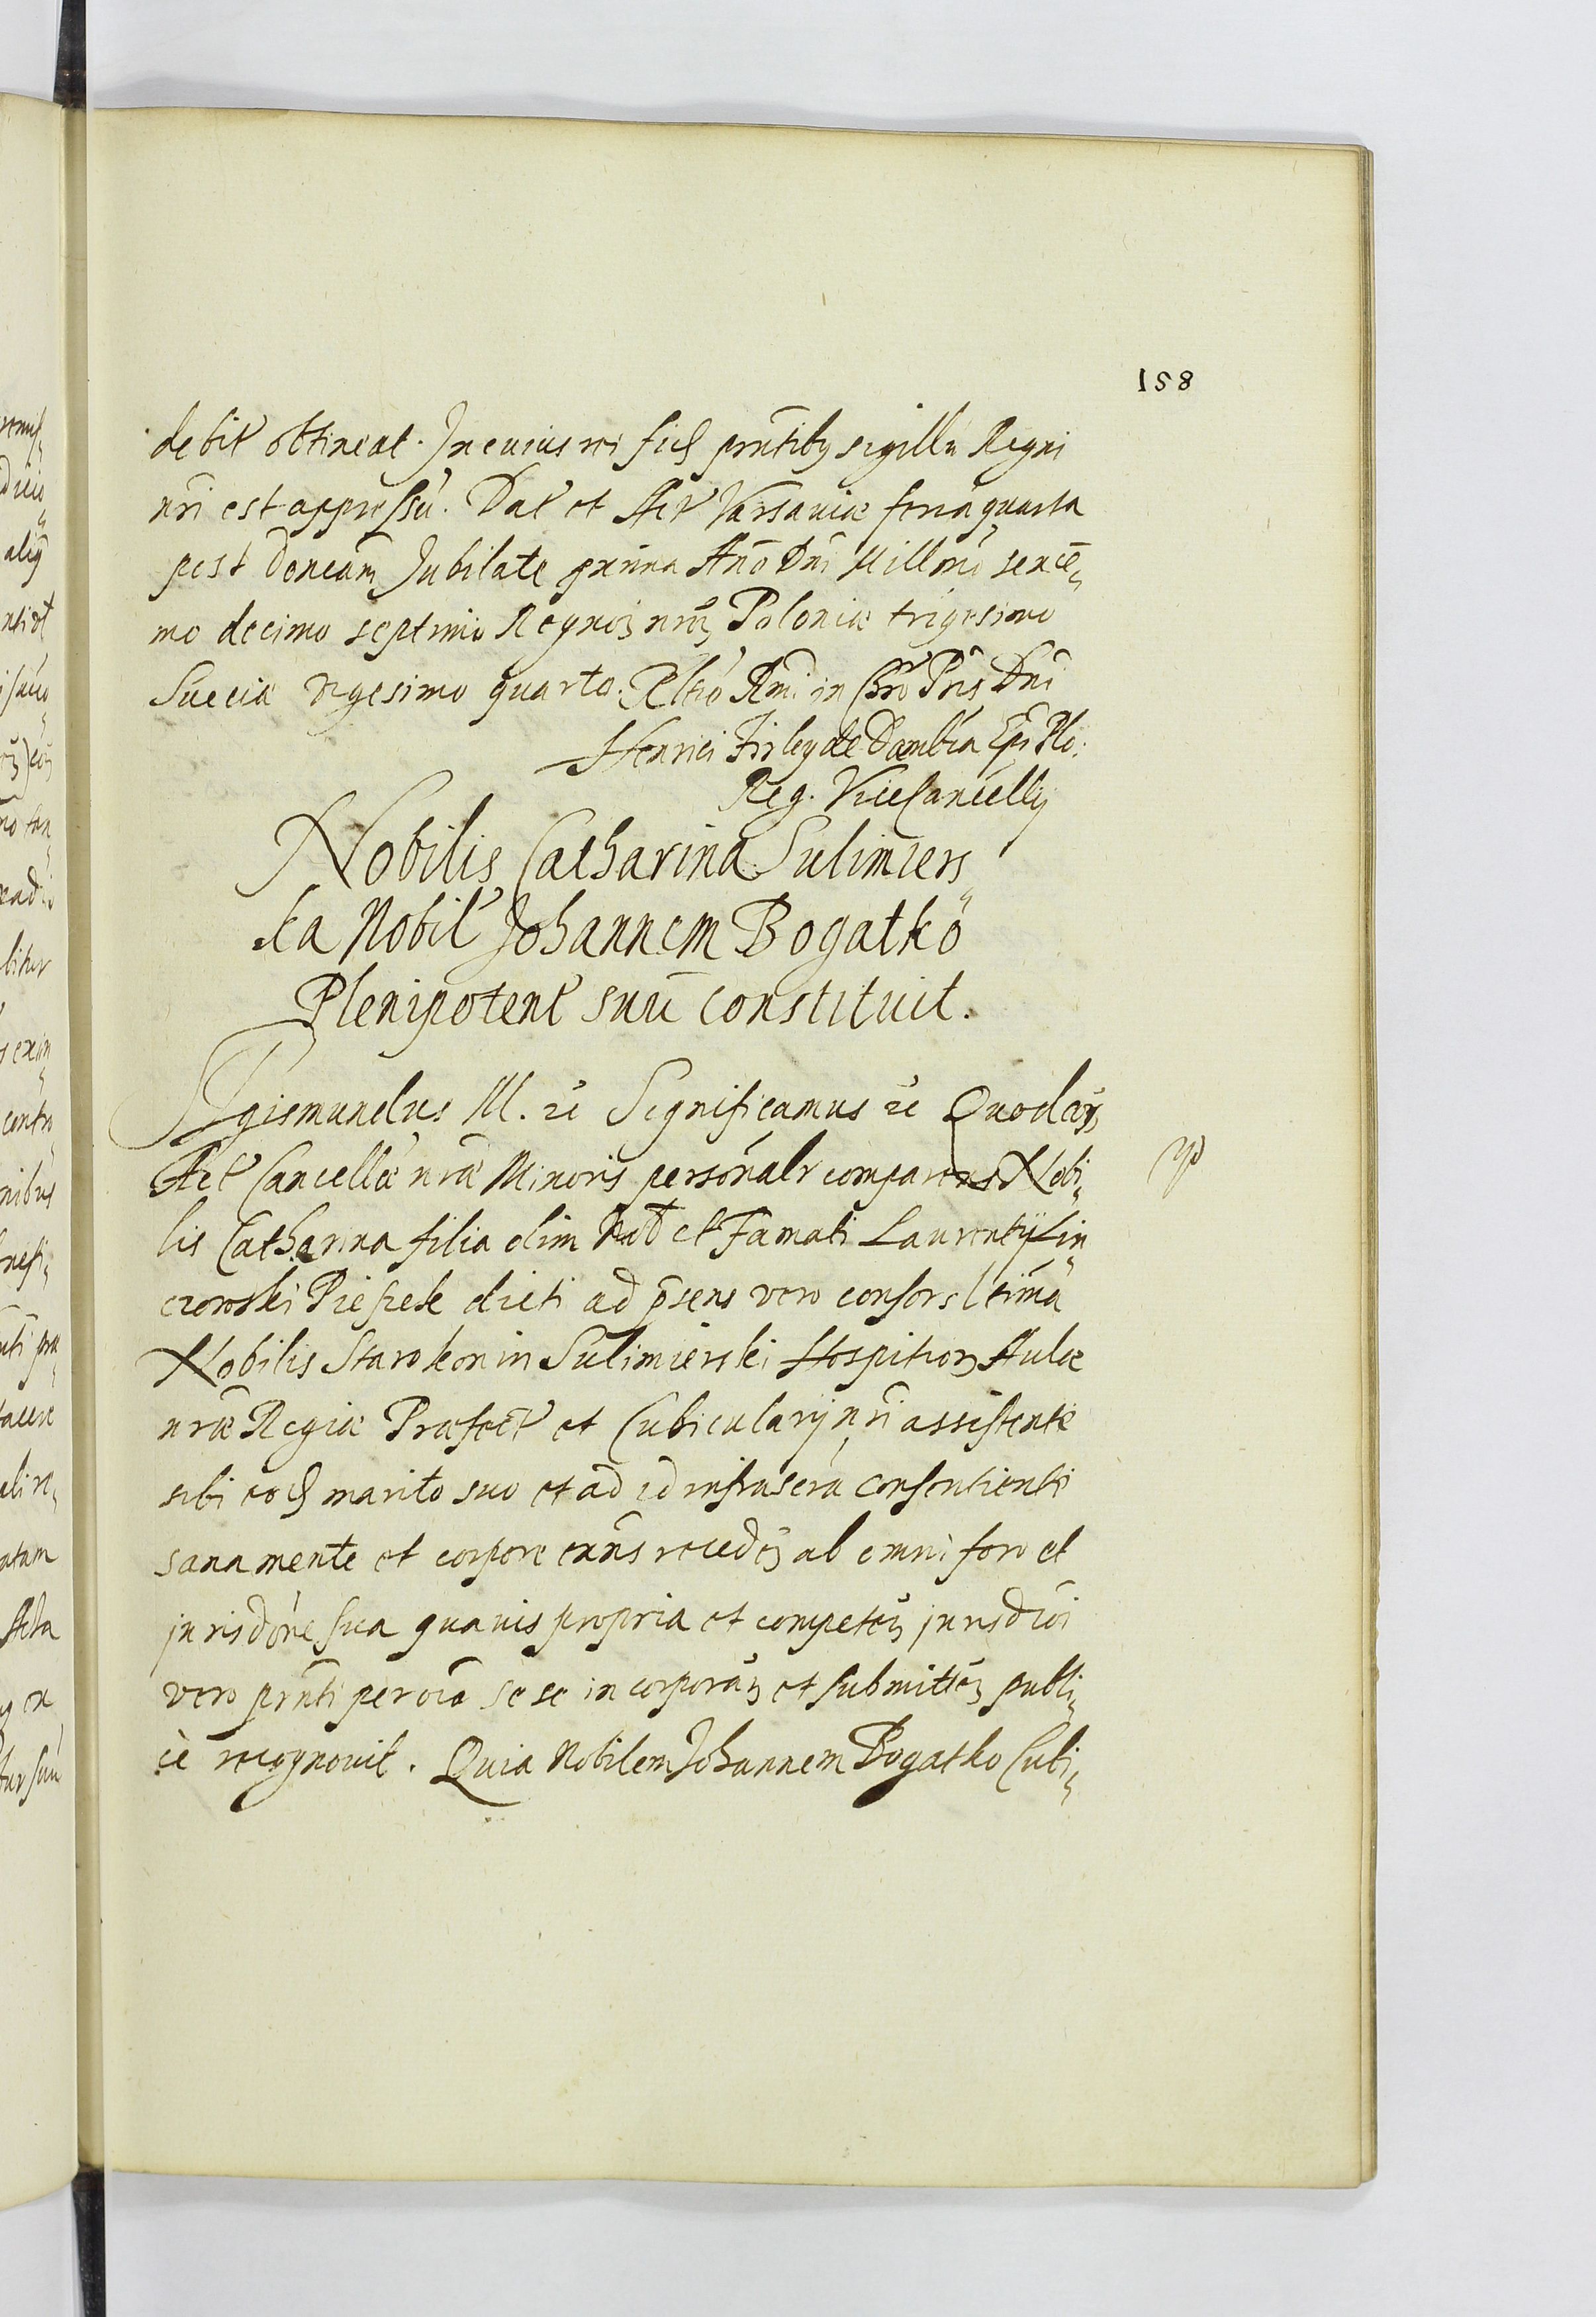 158
debit obtineat. In cuius rei fid prntibus sigillu Regni
nri est appressu. Dat et Act Varsaviæ feria quarta
post Dnicam Jubilate prima Ano Dni Millmo sexce„
mo decimo septimo Regnor nror Poloniæ trigesimo
Sueciæ vigesimo quarto. Rltio Rmi in Chro Pris Dni
Henrici Firley de Dambro Epi Plo:
Reg. Vicecancellÿ
Nobilis Catharina Sulimiers„
ka Nobil Johannem Bogatko
Plenipotent suu constituit.
Sigismundus M. &c Significamus &c Quod cor
Act Cancellæ nræ Minoris personalr comparens Nobi„
lis Catharina filia olim Nob et Famati Laurentÿ Lin„
czowski dicti ad psens vero consors ltima
Nobilis Starokonin Sulimierski Hospitior Aulæ
nræ Regiæ Præfect et Cubicularÿ nri assistente
sibi eod marito suo et ad id infrascra consentiente
sana mente et corpore exns reced ab omni foro et
jurisdone sua quavis propria et competen jurisdioi
vero prnti per oia se se incorporan et submitten publi„
ce recognovit. Quia Nobilem Johannem Bogatko Cubi„